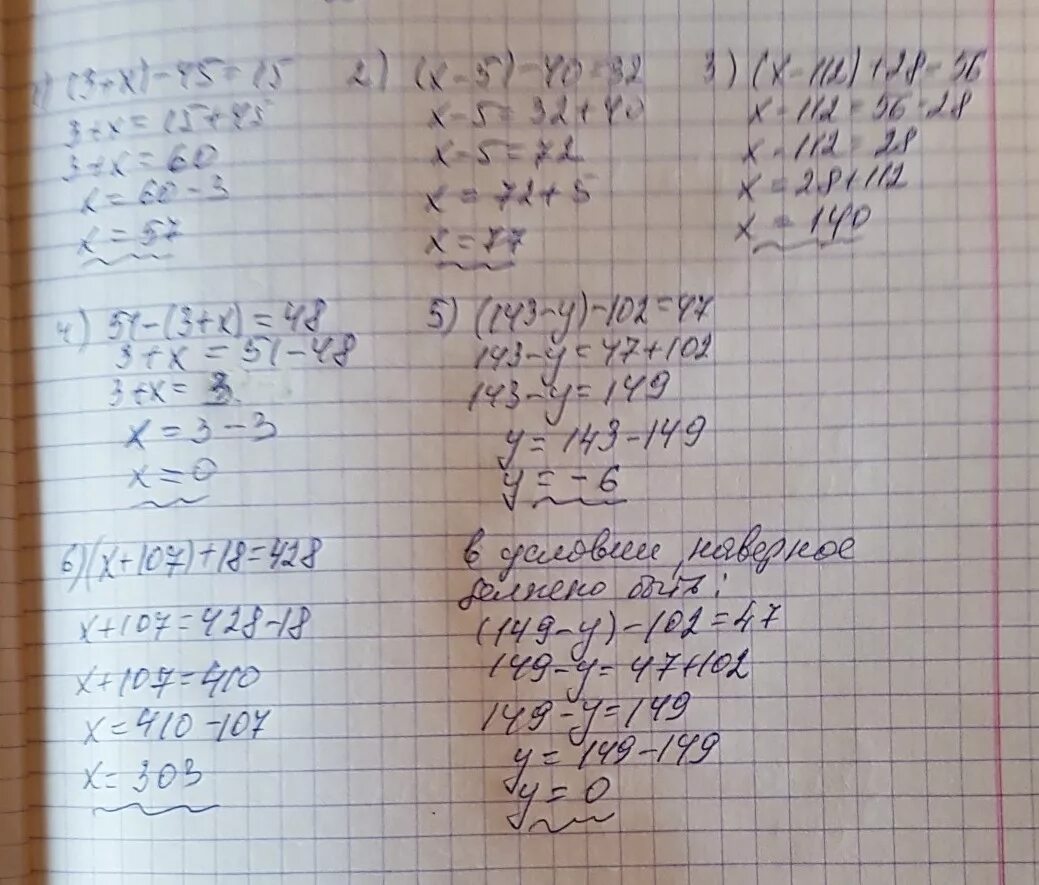 1) (3+x)-45=15
3+x=15+45
3+x=60
x=60-3
x=57
2) (x-5)-40=32
x-5=32+40
x-5=72
x=72+5
x=77
3) (x-112)+28=56
x-112=56-28
x-112=28
x=28+112
x=140
4) 51-(3+x)=48
3+x=51-48
3+x=3
x=3-3
x=0
5) (143-y)-102=47
143-y=47+102
143-y=149
y=143-149
y=-6
6) (x+107)+18=428
x+107=428-18
x+107=410
x=410-107
x=303
в условии наверное
должено быть:
(149-y)-102=47
149-y=47+102
149-y=149
y=149-149
y=0